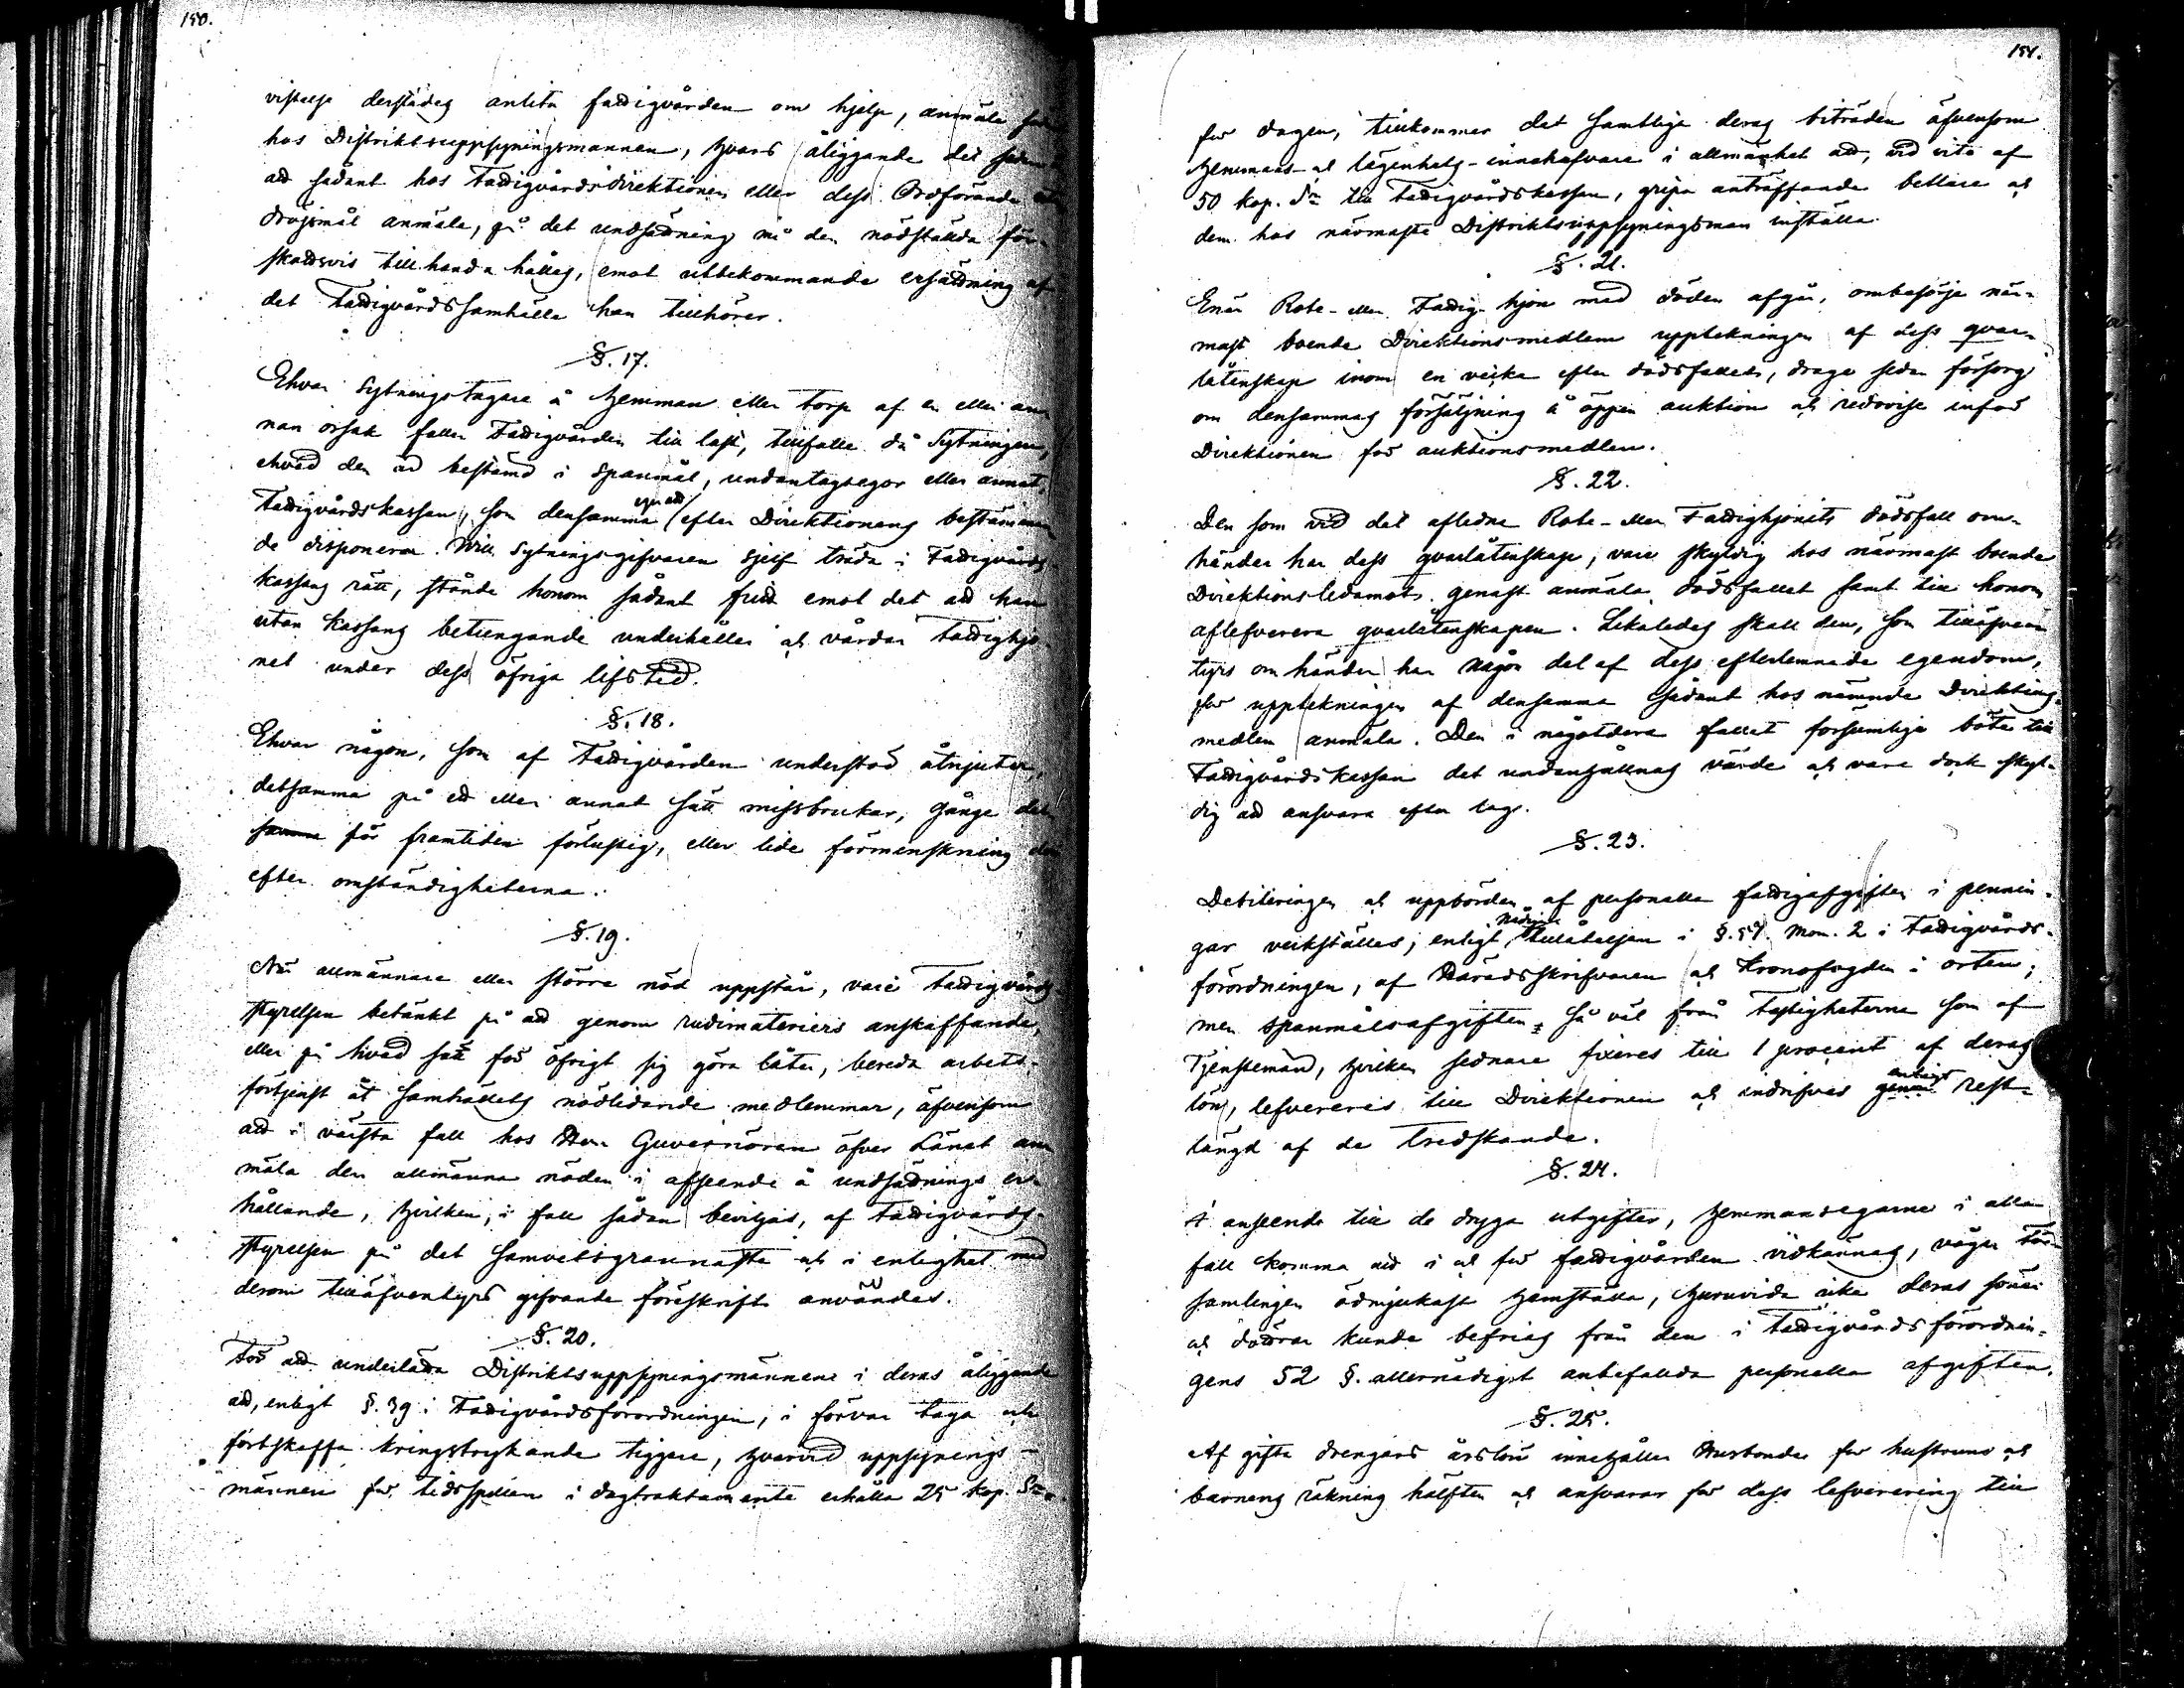 150.
vistelse derstädes anlita fattigvården om hjelp, anmäle
hos Distriktsuppsyningsmannen, hvars åliggande det
att sådant hos Fattigvårdsdirektionen eller dess Ordförande
dröjsmål anmäla, på det undsättning må den nödställda för-
skottsvis tillhanda hållas, emot utbekommande ersättning af
det Fattigvårdssamhälle han tillhörer.
§. 17.
Ehvar Sytningstagare å hemman eller torp af en eller an-
nan orsak faller Fattigvården till last, tillfalle då Sytningen,
ehvad den är bestämd i Spanmål, undantagsegor eller annat,
Fattigvårdskassan, som densamma efter Direktionens bestämman-
de disponerar. Will Sytningsgifvaren sjelf träda i Fattigvårds-
kassans rätt, stånde honom sådant fritt emot det att han
utan Kassans betungande underhåller och vårdar Fattighjo-
net under dess öfriga lifstid.
§. 18.
Ehvar någon, som af Fattigvården understöd åtnjuter,
detsamma på ett eller annat sätt missbrukar, gånge det
samma för framtiden förlustig, eller lide förminskning
efter omständigheterna.
§. 19.
När allmännare eller större nöd uppstår, vare Fattigvårds-
styrelsen betänkt på att genom rudimateriers anskaffande,
eller på hvad sätt för öfrigt sig göra låter, bereda arbets-
förtjenst åt Samhällets nödlidande medlemmar, äfvensom
att i värsta fall hos Herr Guvernören öfver Länet an-
mäla den allmänna nöden i afseende å undsättnings er-
hållande, hvilken, i fall sådan beviljas, af Fattigvårds-
styrelsen på det samvetsgrannaste och i enlighet med
derom tilläfventyrs gifvande föreskrift användes.
§. 20.
För att underlätta Distriktsuppsyningsmännens i deras åliggande
att, enligt §. 39 i Fattigvårdsförordningen, i förvar taga och
fortskaffa kringstrykande tiggare, hvarvid uppsynings-
männen för tidsspillan i dagtraktamente erhålla 25 kop. Sr.
151.
för dagen, tillkommer det samtlige deras biträden äfvensom
hemmans- och lägenhets-innehafvare i allmänhet att, vid vite af
50 kop. Sr till Fattigvårdskassan, gripa anträffande bettlare och
dem hos närmaste Distriktsuppsyningsman inställa.
§. 21.
Enär Rote- eller Fattig-hjon med döden afgår, ombesörje när-
mast boende Direktionsmedlem uppteckningen af dess qvar-
låtenskap inom en vecka efter dödsfallet, drage sedan försorg
om densammas försäljning å öppen auktion och redovise inför
Direktionen för auktionsmedlen.
§. 22.
Den som vid det aflidne Rote- eller Fattighjonets dödsfall om-
händer har dess qvarlåtenskap, vare skyldig hos närmast boende
Direktionsledamot genast anmäla dödsfallet samt till honom
aflefverera qvarlåtenskapen. Likaledes skall den, som tilläfven-
tyrs om händer har någon del af dess efterlemnade egendom,
för uppteckningen af densamma sådant hos nämnde Direktions-
medlem anmäla. Den i någotdera fallet försumlige böte till
Fattigvårdskassan det undanhållnas värde och vare dock skyl-
dig att ansvara efter lag.
§. 23.
Debiteringen och uppbörden af personella fattigafgiften i pennin-
gar verkställes, enligt Nådiga tillåtelsen i §. 57 Mom. 2 i Fattigvårds-
förordningen, af Häradsskrifvaren och Kronofogden i orten;
men spanmålsafgiften, så väl från fastigheterna som af
Tjenstemän, hvilken sednare fixeres till 1 procent af deras
lön, lefvereres till Direktionen och indrifves enligt rest-
längd af de tredskande.
§. 24.
I anseende till de dryga utgifter, hemmansegarne i alla
fall komma att i och för fattigvården vidkännas, vågar För-
samlingen ödmjukast hemställa, huruvida icke deras söner
och döttrar kunde befrias från den i Fattigvårdsförordnin-
gens 52 §. allernådigst anbefallda personella afgiften.
§. 25.
Af gifta drengars årslön innehåller Husbonden för hustruns och
barnens räkning hälften och ansvarar för dess lefverering till